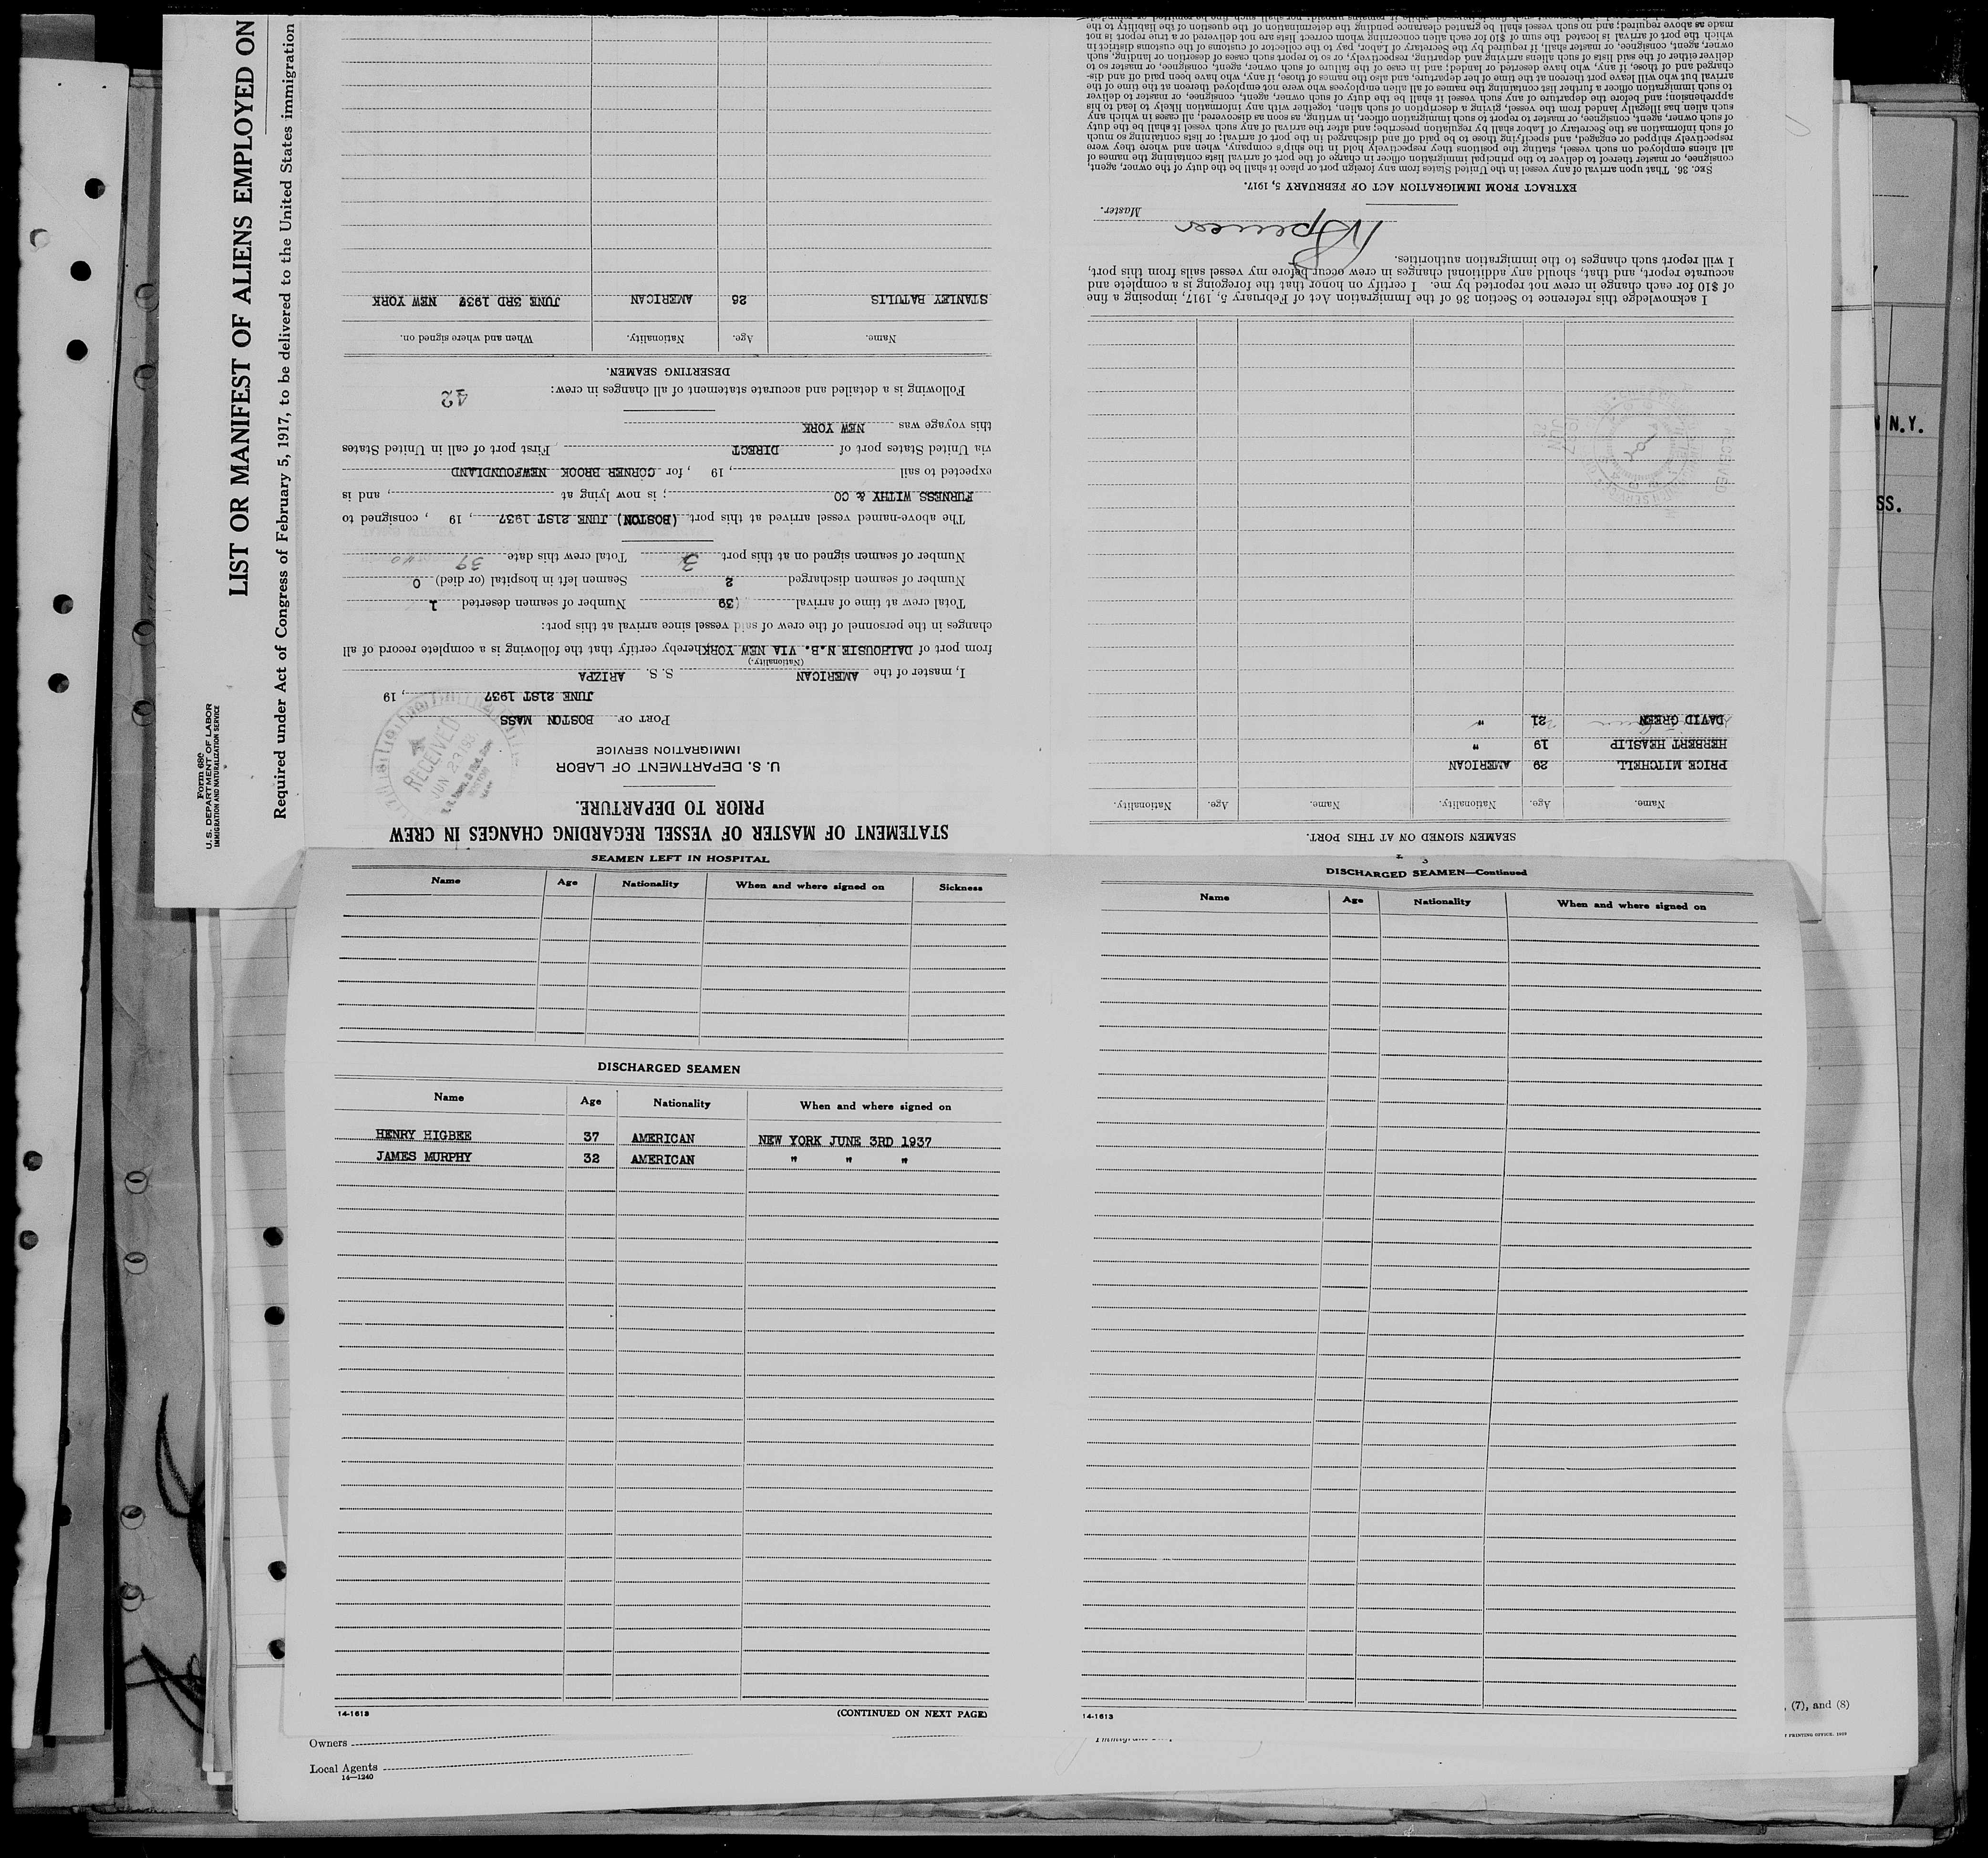 LIST OR MANIFEST OF ALIENS EMPLOYED ON
Required under Act of Congress of February 5, 1917, to be delivered to the United States immigration
Form 680
U. S. DEPARTMENT OF LABOR
IMMIGRATION AND NATURALIZATION SERVICE
STATEMENT OF MASTER OF VESSEL REGARDING CHANGES IN CREW
PRIOR TO DEPARTURE.
U. S. DEPARTMENT OF LABOR
IMMIGRATION SERVICE
RECEIVED
Port of BOSTON MASS
JUNE 21ST 1937, 19
I, master of the AMERICAN S. S. ARIZPA
(Nationality.)
from port of DALHOUSIE N.B. VIA NEW YORK hereby certify that the following is a complete record of all
changes in the personnel of the crew of said vessel since arrival at this port:
Total crew at time of arrival (39 Number of seamen deserted 1
Number of seamen discharged 2 Seamen left in hospital (or died) 0
Number of seamen signed on at this port 3 Total crew this date 39
The above-named vessel arrived at this port (BOSTON) JUNE 21ST 1937, 19 , consigned to
FURNESS WITHY & CO ; is now lying at , and is
expected to sail , 19 , for CORNER BROOK NEWFOUNDLAND
via United States port of DIRECT First port of call in United States
this voyage was NEW YORK
Following is a detailed and accurate statement of all changes in crew:
42
DESERTING SEAMEN.
Name. Age. Nationality. When and where signed on.
STANLEY BATULIS 26 AMERICAN JUNE 3RD 1937 NEW YORK
SEAMEN SIGNED ON AT THIS PORT.
Name. Age. Nationality. Name. Age. Nationality.
PRICE MITCHELL 29 AMERICAN
HERBERT HEASLIP 19 "
DAVID GREEN 21 "
RECEIVED
I acknowledge this reference to Section 36 of the Immigration Act of February 5, 1917, imposing a fine
of $10 for each change in crew not reported by me. I certify on honor that the foregoing is a complete and
accurate report, and that, should any additional changes in crew occur before my vessel sails from this port,
I will report such changes to the immigration authorities.
Spencer
Master.
EXTRACT FROM IMMIGRATION ACT OF FEBRUARY 5, 1917.
Sec. 36. That upon arrival of any vessel in the United States from any foreign port or place it shall be the duty of the owner, agent,
consignee, or master thereof to deliver to the principal immigration officer in charge of the port of arrival lists containing the names of
all aliens employed on such vessel, stating the positions they respectively hold in the ship's company, when and where they were
respectively shipped or engaged, and specifying those to be paid off and discharged in the port of arrival; or lists containing so much
of such information as the Secretary of Labor shall by regulation prescribe; and after the arrival of any such vessel it shall be the duty
of such owner, agent, consignee, or master to report to such immigration officer, in writing, as soon as discovered, all cases in which any
such alien has illegally landed from the vessel, giving a description of such alien, together with any information likely to lead to his
apprehension; and before the departure of any such vessel it shall be the duty of such owner, agent, consignee, or master to deliver
to such immigration officer a further list containing the names of all alien employees who were not employed thereon at the time of the
arrival but who will leave port thereon at the time of her departure, and also the names of those, if any, who have been paid off and dis-
charged and of those, if any, who have deserted or landed; and in case of the failure of such owner, agent, consignee, or master so to
deliver either of the said lists of such aliens arriving and departing, respectively, or so to report such cases of desertion or landing, such
owner, agent, consignee, or master shall, if required by the Secretary of Labor, pay to the collector of customs of the customs district in
which the port of arrival is located the sum of $10 for each alien concerning whom correct lists are not delivered or a true report is not
made as above required; and no such vessel shall be granted clearance pending the determination of the question of the liability to the
SEAMEN LEFT IN HOSPITAL
Name Age Nationality When and where signed on Sickness
DISCHARGED SEAMEN
Name Age Nationality When and where signed on
HENRY HIGBEE 37 AMERICAN NEW YORK JUNE 3RD 1937
JAMES MURPHY 32 AMERICAN " " "
14-1613 (CONTINUED ON NEXT PAGE)
DISCHARGED SEAMEN—Continued
Name Age Nationality When and where signed on
14-1613
Owners
Local Agents
14—1240
N.Y.
SS.
, (7), and (8)
PRINTING OFFICE